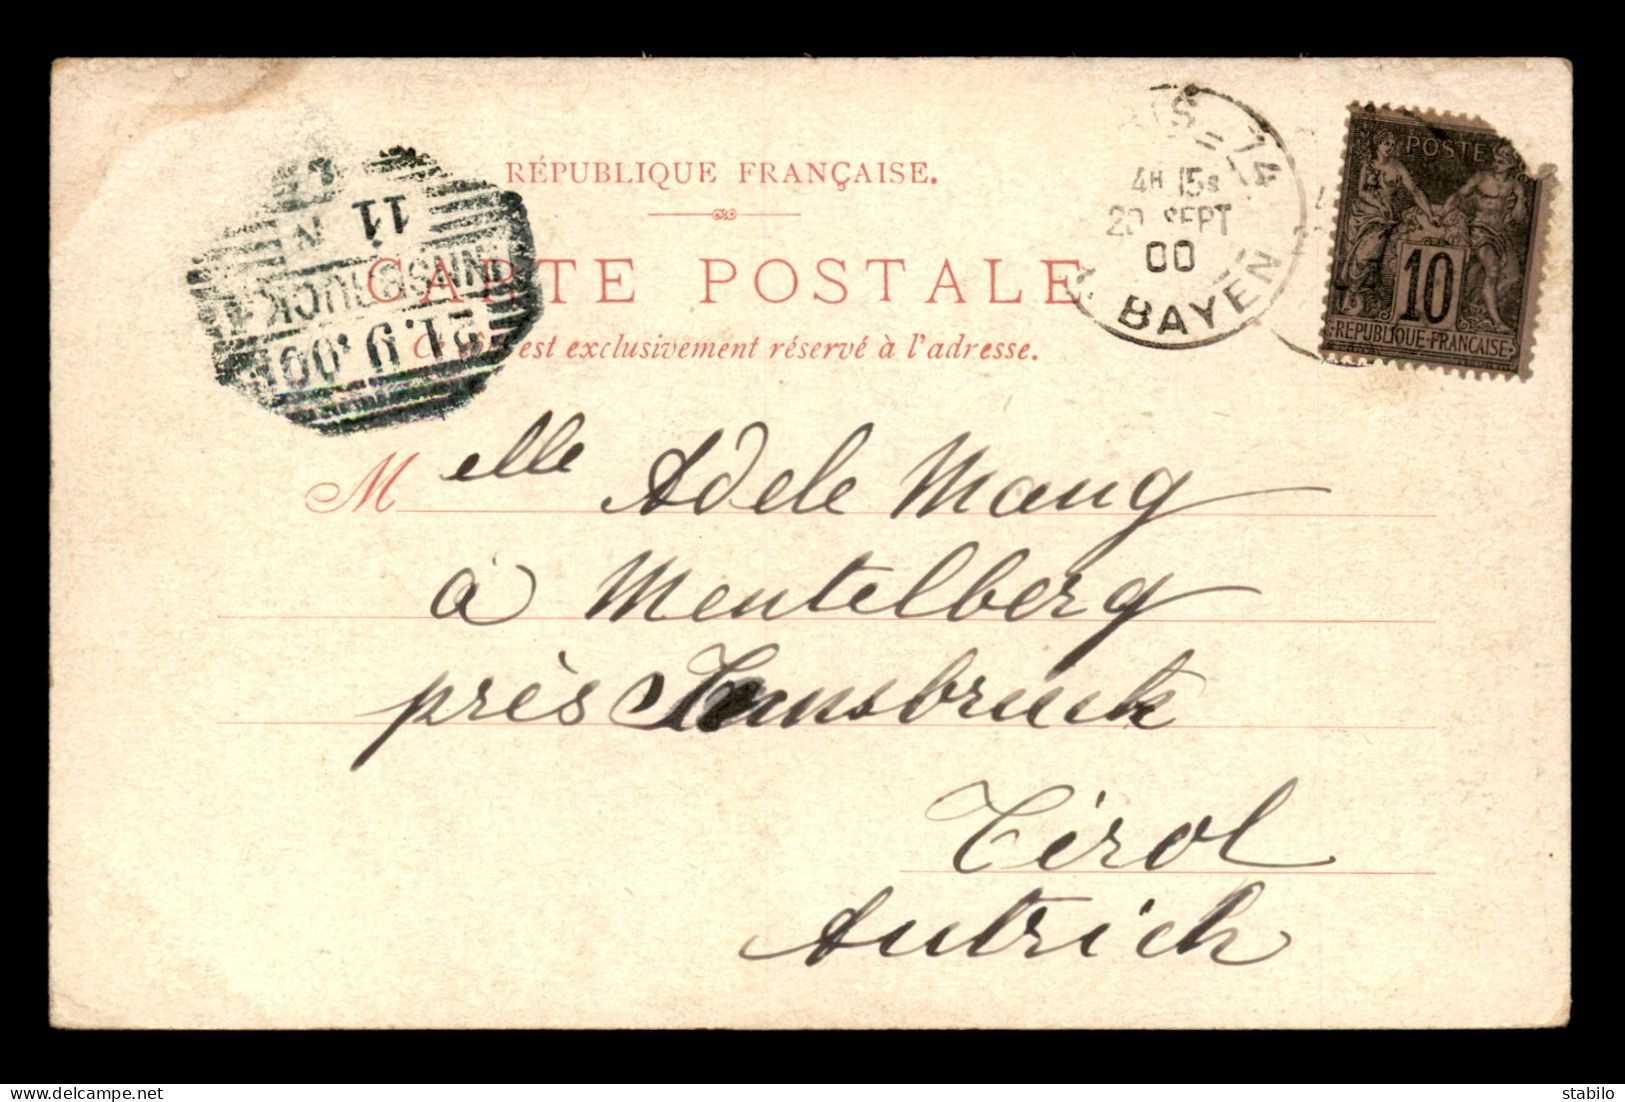 RÉPUBLIQUE FRANÇAISE.
CARTE POSTALE
est exclusivement réservé à l'adresse.
Melle Adele Mang
à Mentelberg
près Innsbruck
Tirol
Autrich
74
4H 15S
SEPT
00
BAYEN
POSTE
10
REPUBLIQUE-FRANÇAISE
11
N
INNSBRUCK 1
21.9.00
stabilo